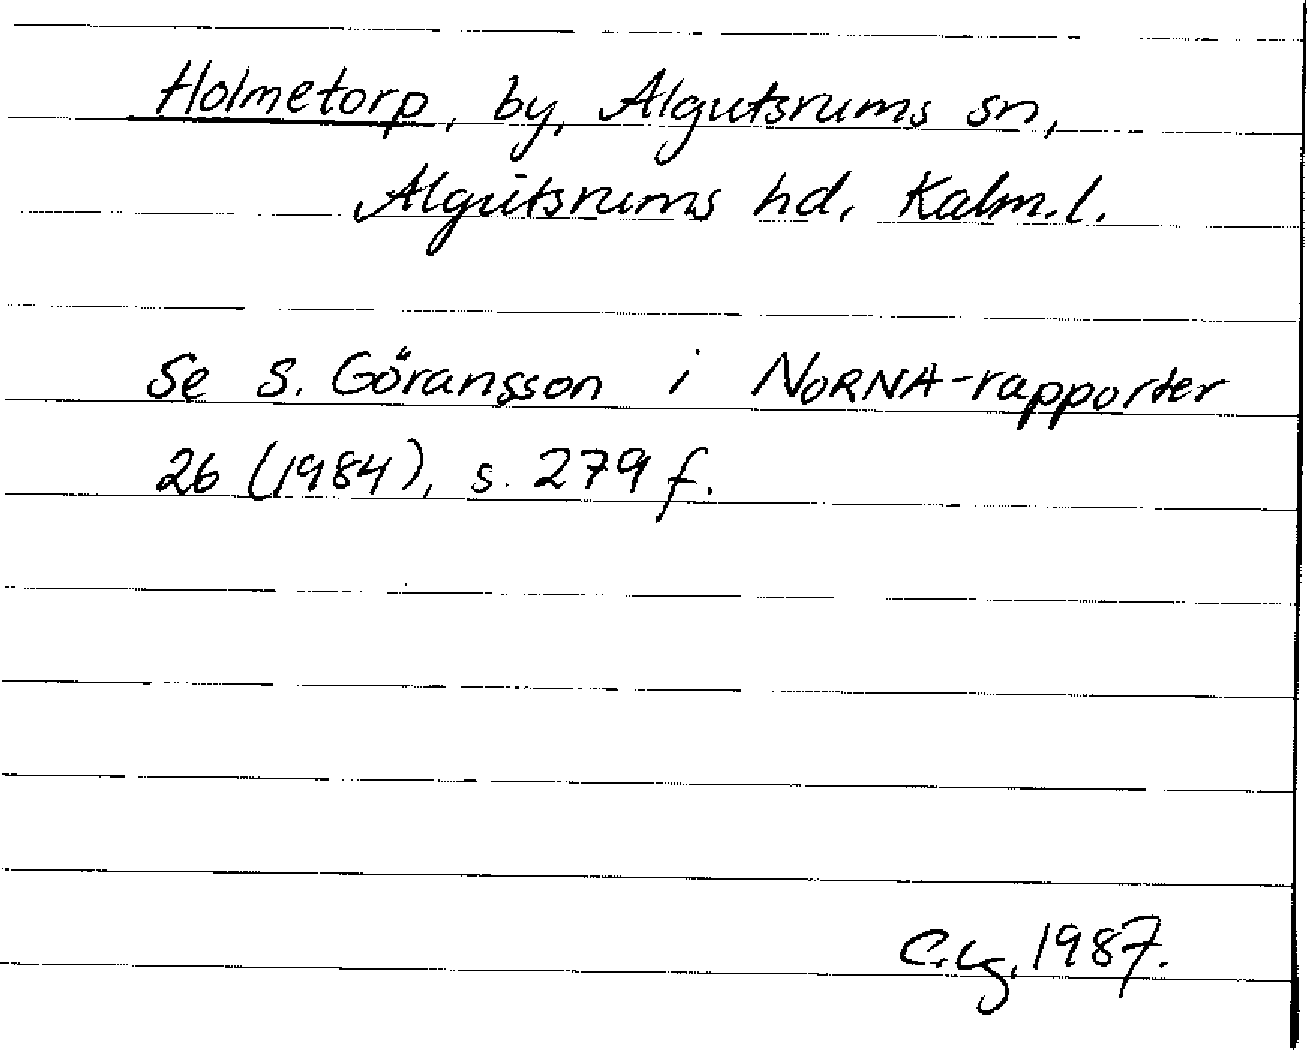 Holmetorp, by, Algutsrums sn,
Algutsrums hd. Kalm.l.
Se S. Göransson i NORNA-rapporter
26 (1984), s. 279 f.
1987.